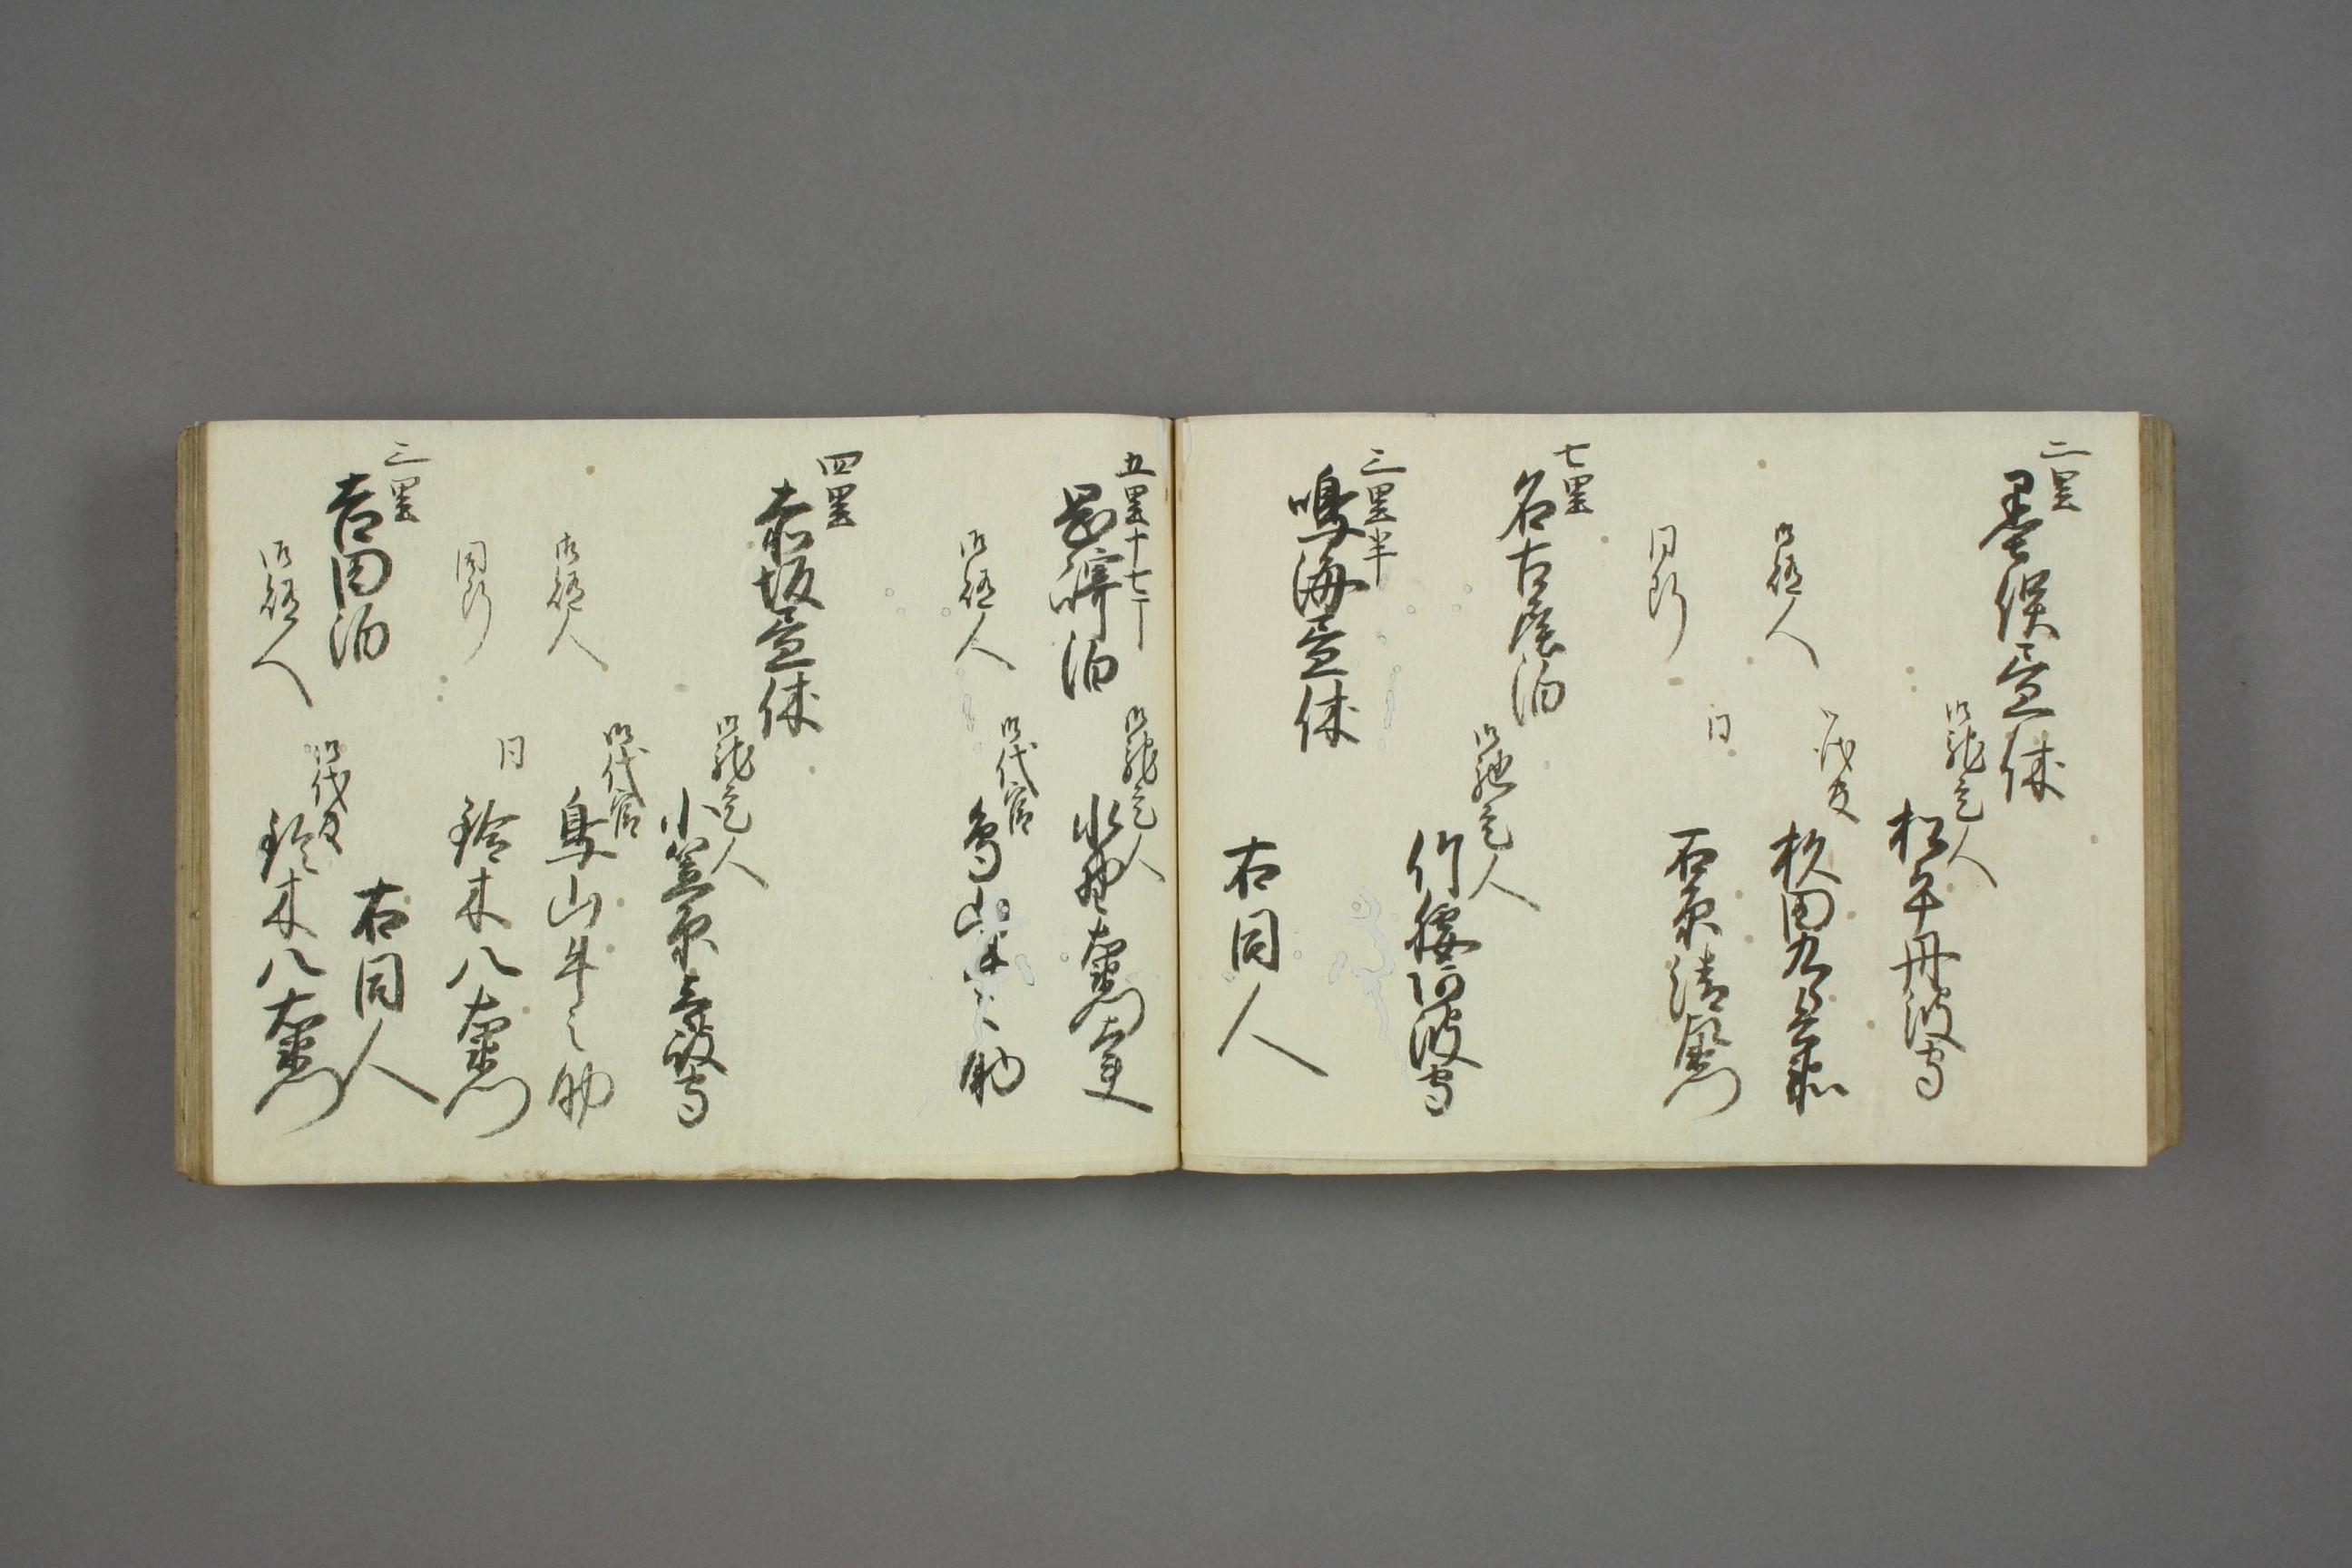 二里
墨俣昼休
御馳走人
松平丹波守
御賄人
御代官
杉田九郎兵衛
同断
同
石原清左衛門
七里
名古屋泊
御馳走人
竹腰河波守
三里半
鳴海昼休
右同人
五里十七丁
岡崎泊
御馳走人
水野右衛門大夫
御賄人
御代官
鳥山牛之助
四里
赤坂昼休
御馳走人
小笠原壱岐守
御賄人
御代官
鳥山牛之助
同断
同
鈴木八右衛門
三里
吉田泊
右同人
御賄人
御代官
鈴木八右衛門